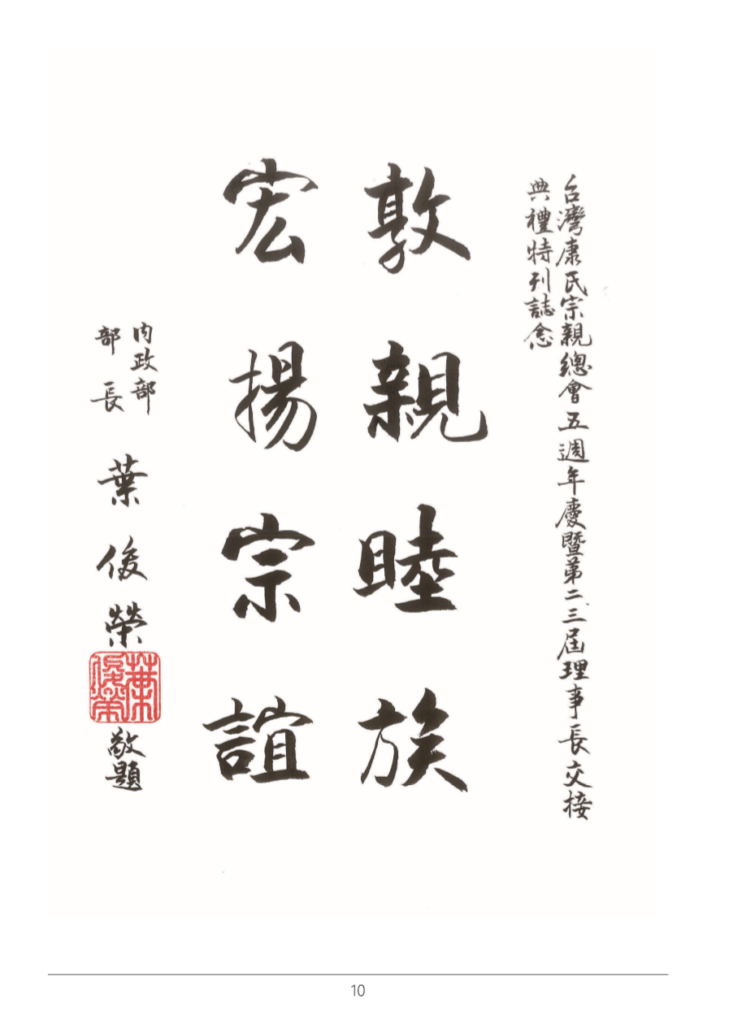 台灣康氏宗親總會五週年慶暨第二、三屆理事長交接
典禮特刊誌念
敦親睦族
宏揚宗誼
內政部
部長
葉俊榮
葉俊榮
敬題
10